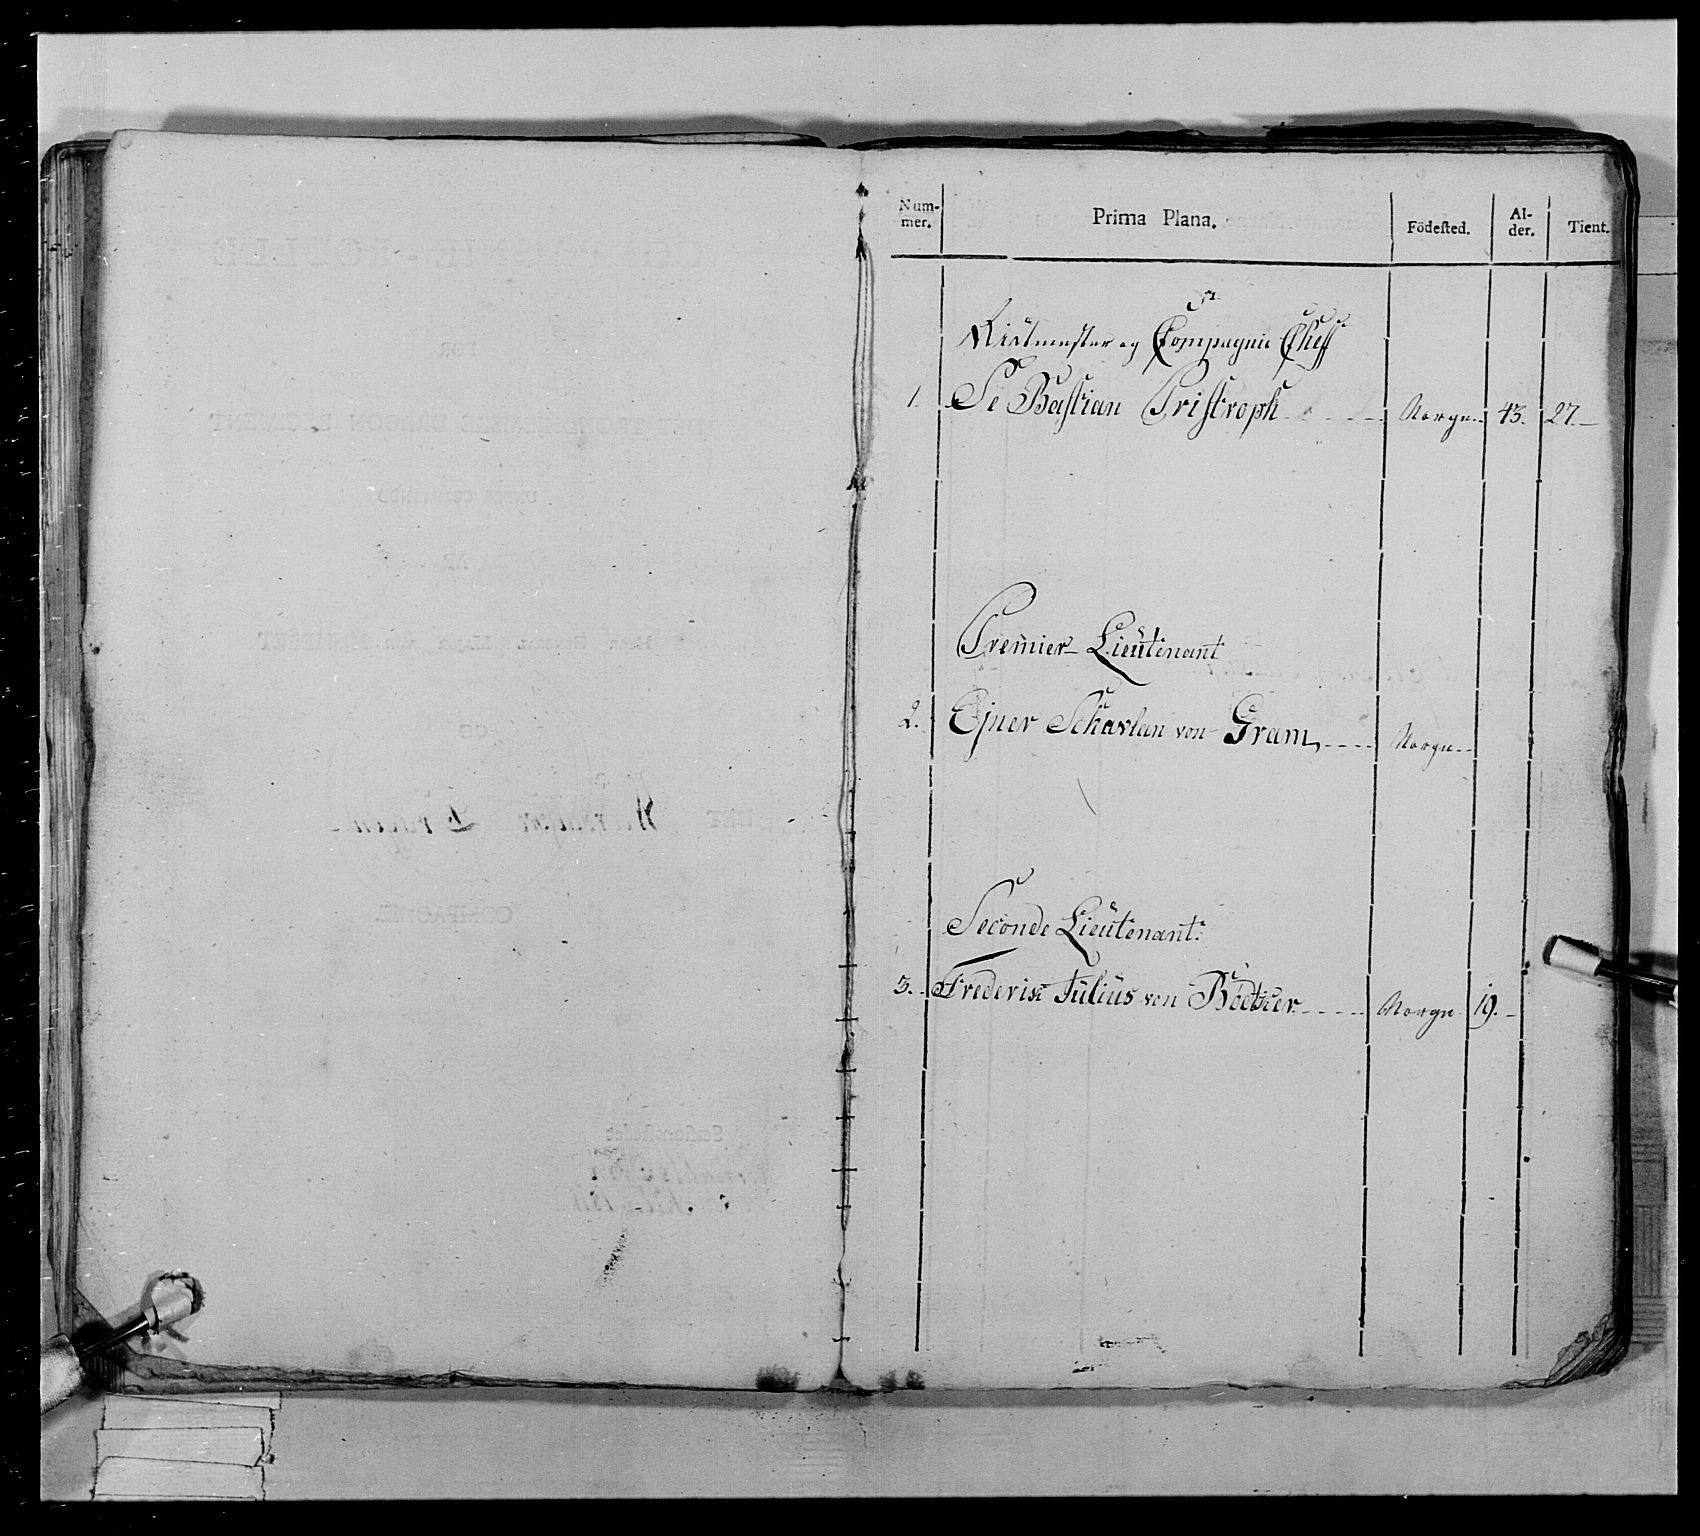 Num-
mer.
Prima Plana.
Födested.
Al-
der.
Tient.
Ritmester og Compagnie Cheff
1. Se Bastian Pristroph Norge 43. 27.
Premier-Lieutenant
2. Ejner Schavlan von Gram, Norge
Seconde Lieutenant:
3. Frederik Julius von Bödtker Norge 19.